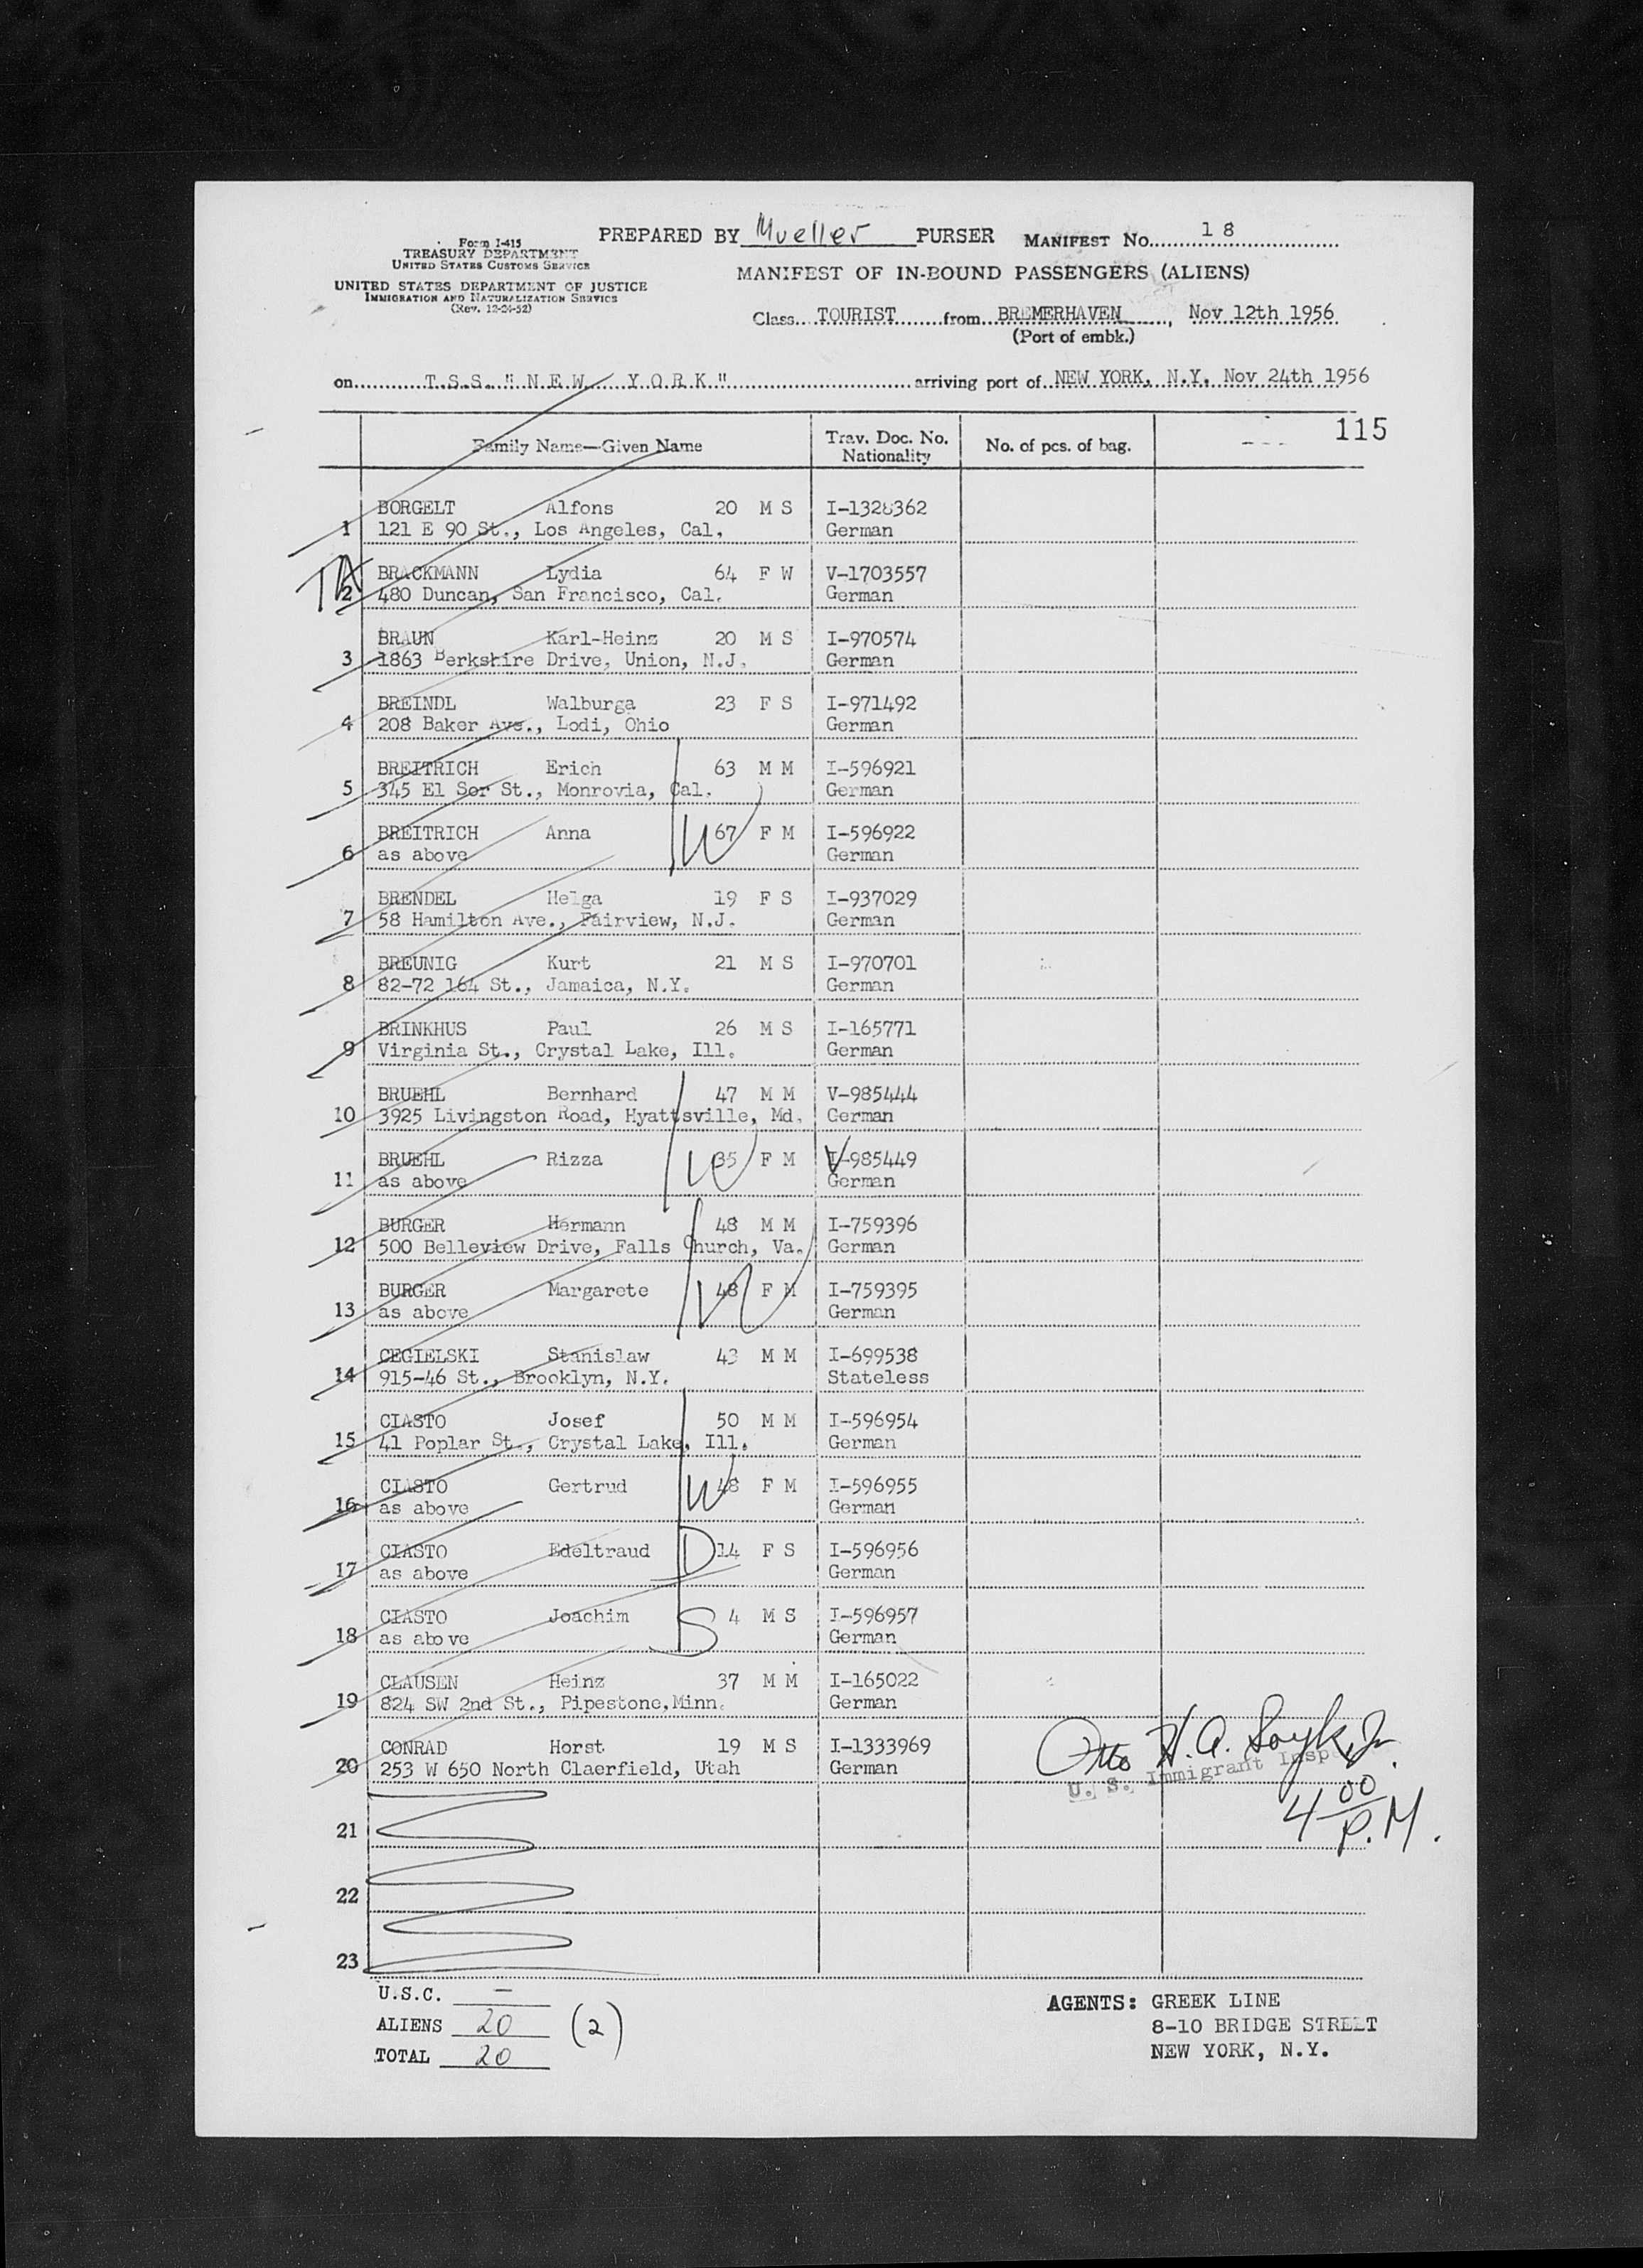 PREPARED BY Mueller PURSER MANIFEST No. 18
Form I-415
TREASURY DEPARTMENT
UNITED STATES CUSTOMS SERVICE
UNITED STATES DEPARTMENT OF JUSTICE
IMMIGRATION AND NATURALIZATION SERVICE
(Rev. 12-24-52)
MANIFEST OF IN-BOUND PASSENGERS (ALIENS)
Class TOURIST from BREMERHAVEN, Nov 12th 1956
(Port of embk.)
on T.S.S. "NEW YORK" arriving port of NEW YORK, N.Y. Nov 24th 1956
115
Family Name—Given Name Trav. Doc. No. Nationality No. of pcs. of bag. ---
BORGELT Alfons 20 M S I-1328362
1 121 E 90 St., Los Angeles, Cal. German
BRACKMANN Lydia 64 F W V-1703557
2 480 Duncan, San Francisco, Cal. German
BRAUN Karl-Heinz 20 M S I-970574
3 1863 Berkshire Drive, Union, N.J. German
BREINDL Walburga 23 F S I-971492
4 208 Baker Ave., Lodi, Ohio German
BREITRICH Erich 63 M M I-596921
5 345 El Sor St., Monrovia, Cal. German
BREITRICH Anna W 67 F M I-596922
6 as above German
BRENDEL Helga 19 F S I-937029
7 58 Hamilton Ave., Fairview, N.J. German
BREUNIG Kurt 21 M S I-970701
8 82-72 164 St., Jamaica, N.Y. German
BRINKHUS Paul 26 M S I-165771
9 Virginia St., Crystal Lake, Ill. German
BRUEHL Bernhard 47 M M V-985444
10 3925 Livingston Road, Hyattsville, Md. German
BRUEHL Rizza W 35 F M V-985449
11 as above German
BURGER Hermann 48 M M I-759396
12 500 Belleview Drive, Falls Church, Va. German
BURGER Margarete W 48 F M I-759395
13 as above German
CEGIELSKI Stanislaw 43 M M I-699538
14 915-46 St., Brooklyn, N.Y. Stateless
CIASTO Josef 50 M M I-596954
15 41 Poplar St., Crystal Lake, Ill. German
CIASTO Gertrud W 48 F M I-596955
16 as above German
CIASTO Edeltraud D 14 F S I-596956
17 as above German
CIASTO Joachim S 4 M S I-596957
18 as above German
CLAUSEN Heinz 37 M M I-165022
19 824 SW 2nd St., Pipestone, Minn. German
CONRAD Horst 19 M S I-1333969
20 253 W 650 North Claerfield, Utah German
Otto H.A.
U. S. Immigrant Insp
4 00 P.M.
21
22
23
U.S.C. –
ALIENS 20 (2)
TOTAL 20
AGENTS: GREEK LINE
8-10 BRIDGE STREET
NEW YORK, N.Y.